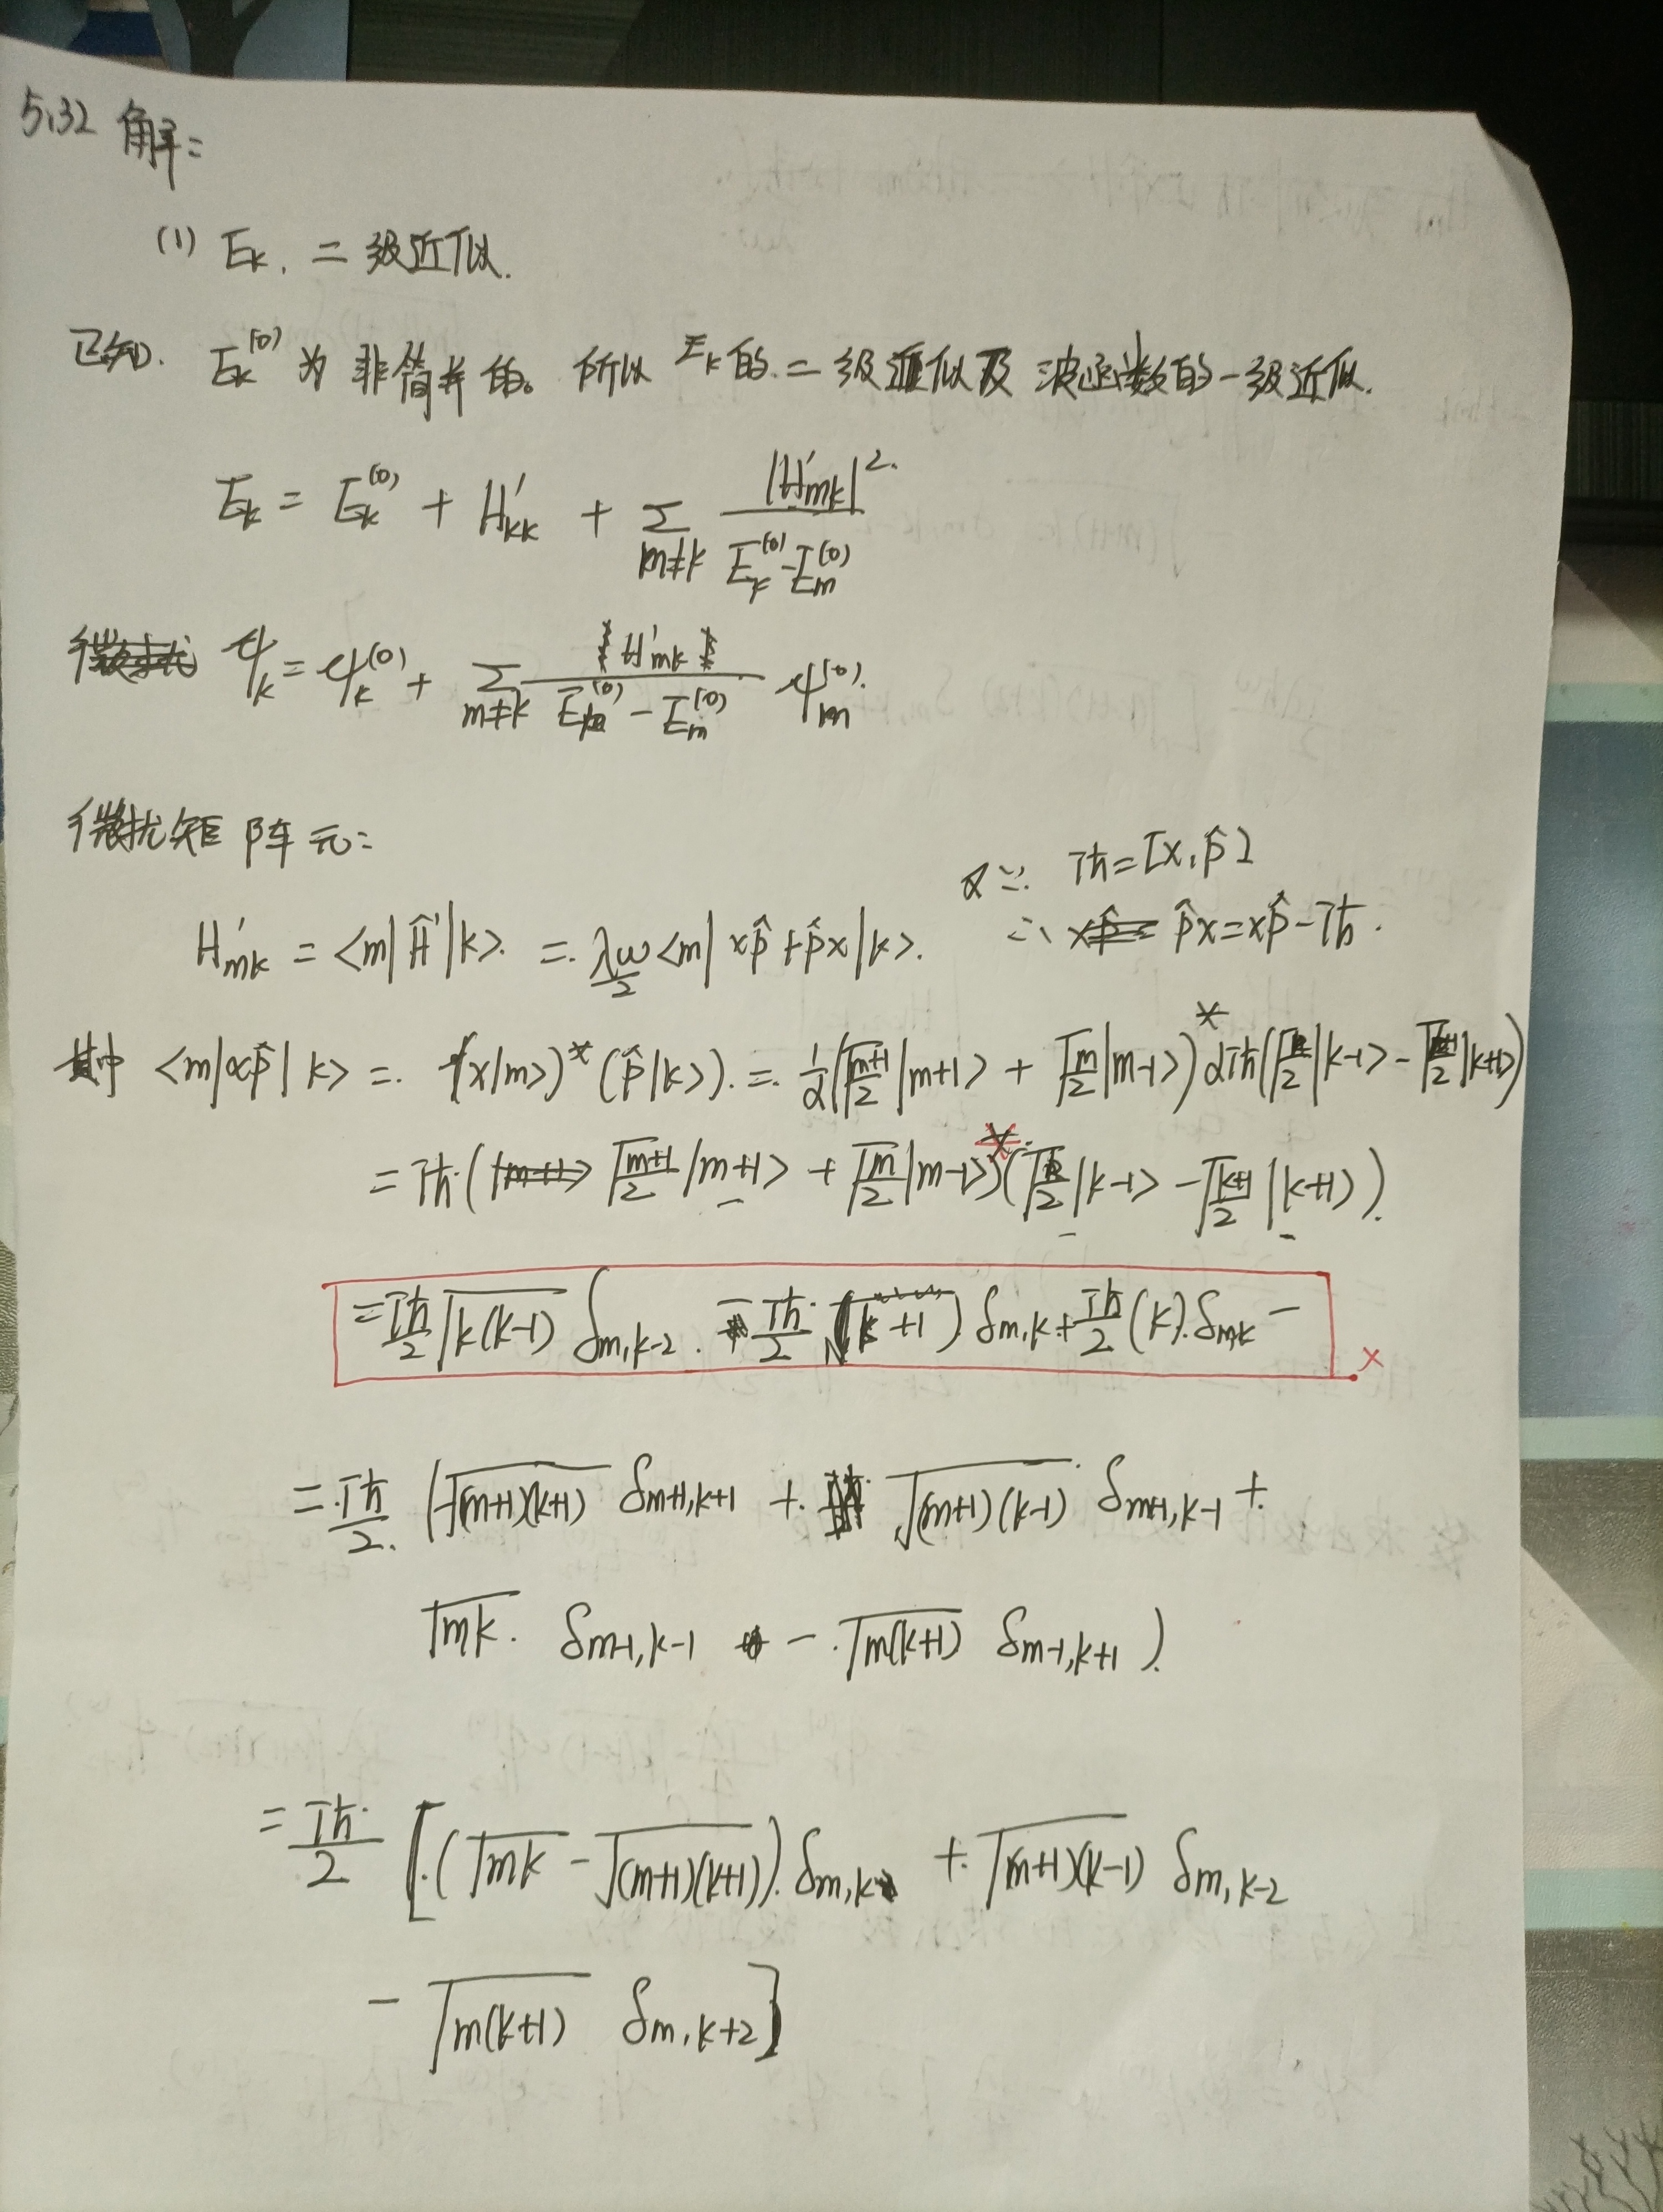 5.32 解:
(1) Eₖ. 二级近似.
已知. Eₖ⁽⁰⁾ 为 非简并 的。所以 Eₖ的.二级近似及 波函数的一级近似.
Eₖ = Eₖ⁽⁰⁾ + H'ₖₖ + Σ_{m≠k} |H'ₘₖ|² / (Eₖ⁽⁰⁾ - Eₘ⁽⁰⁾)
ψₖ = ψₖ⁽⁰⁾ + Σ_{m≠k} H'ₘₖ / (Eₖ⁽⁰⁾ - Eₘ⁽⁰⁾) ψₘ⁽⁰⁾.
微扰矩阵元:
∵ iħ = [x, p̂]
H'ₘₖ = <m|Ĥ'|k>. = λω/2 <m| xp̂ + p̂x |k>. ∴ p̂x = xp̂ - iħ.
其中 <m|xp̂|k> = (x|m>)* (p̂|k>). = 1/α (√((m+1)/2) |m+1> + √(m/2) |m-1>)* αiħ (√(k/2) |k-1> - √((k+1)/2) |k+1>)
= iħ·( √((m+1)/2) |m+1> + √(m/2) |m-1>)* (√(k/2) |k-1> - √((k+1)/2) |k+1>).
= iħ/2 √(k(k-1)) δ_{m,k-2} - iħ/2 (k+1) δ_{m,k} + iħ/2 (k). δ_{mk} - ×
= iħ/2. (-√((m+1)(k+1)) δ_{m+1,k+1} + √((m+1)(k-1)) δ_{m+1,k-1} +
√(mk). δ_{m-1,k-1} - √(m(k+1)) δ_{m-1,k+1} ).
= iħ/2 [(√(mk) - √((m+1)(k+1))) δ_{m,k} + √((m+1)(k-1)) δ_{m,k-2}
- √(m(k+1)) δ_{m,k+2}]